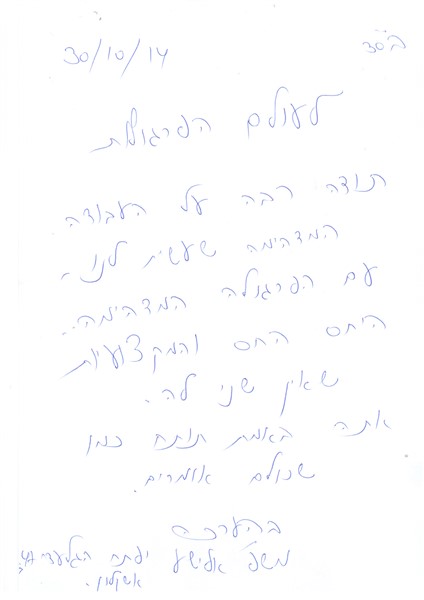 בס"ד
30/10/14
לעולם הפרגולות
תודה רבה על העבודה
המדהימה שעשית לנו..
עם הפרגולה המדהימה..
היחס החם והמקצועיות
שאין שני לה.
אתה באמת תותח כמו
שכולם אומרים.
בהערכה
משפ' אלישע יפתח הגלעדי
אשקלון.